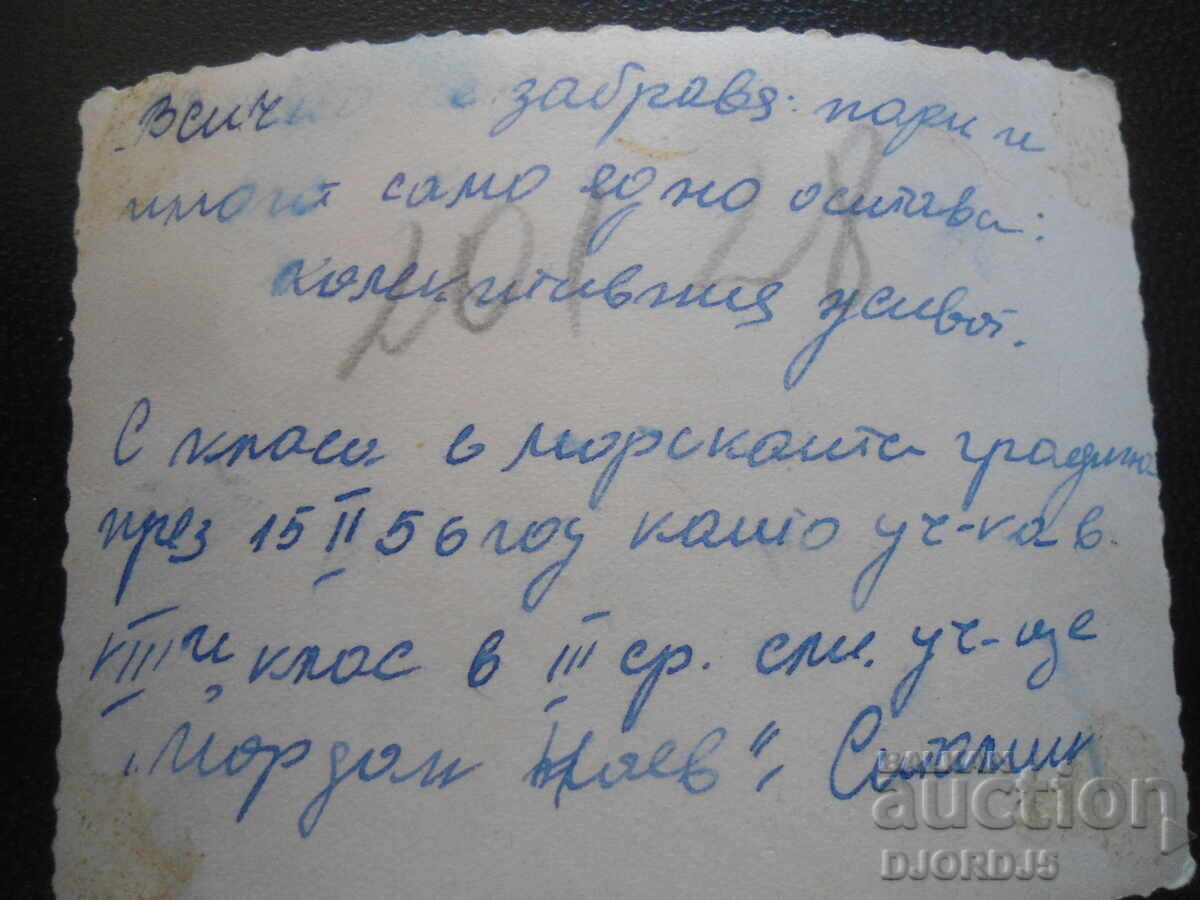 Всичко се забравя: пари и
имота само едно остава:
колективния живот.
С класа в морската градина
през 15 II 56 год като уч-ка в
VIII и клас в III ср. см. уч-ще
"Йордан Ноев", Сталин
201 28
BALKAN
auction
DJORDJ5